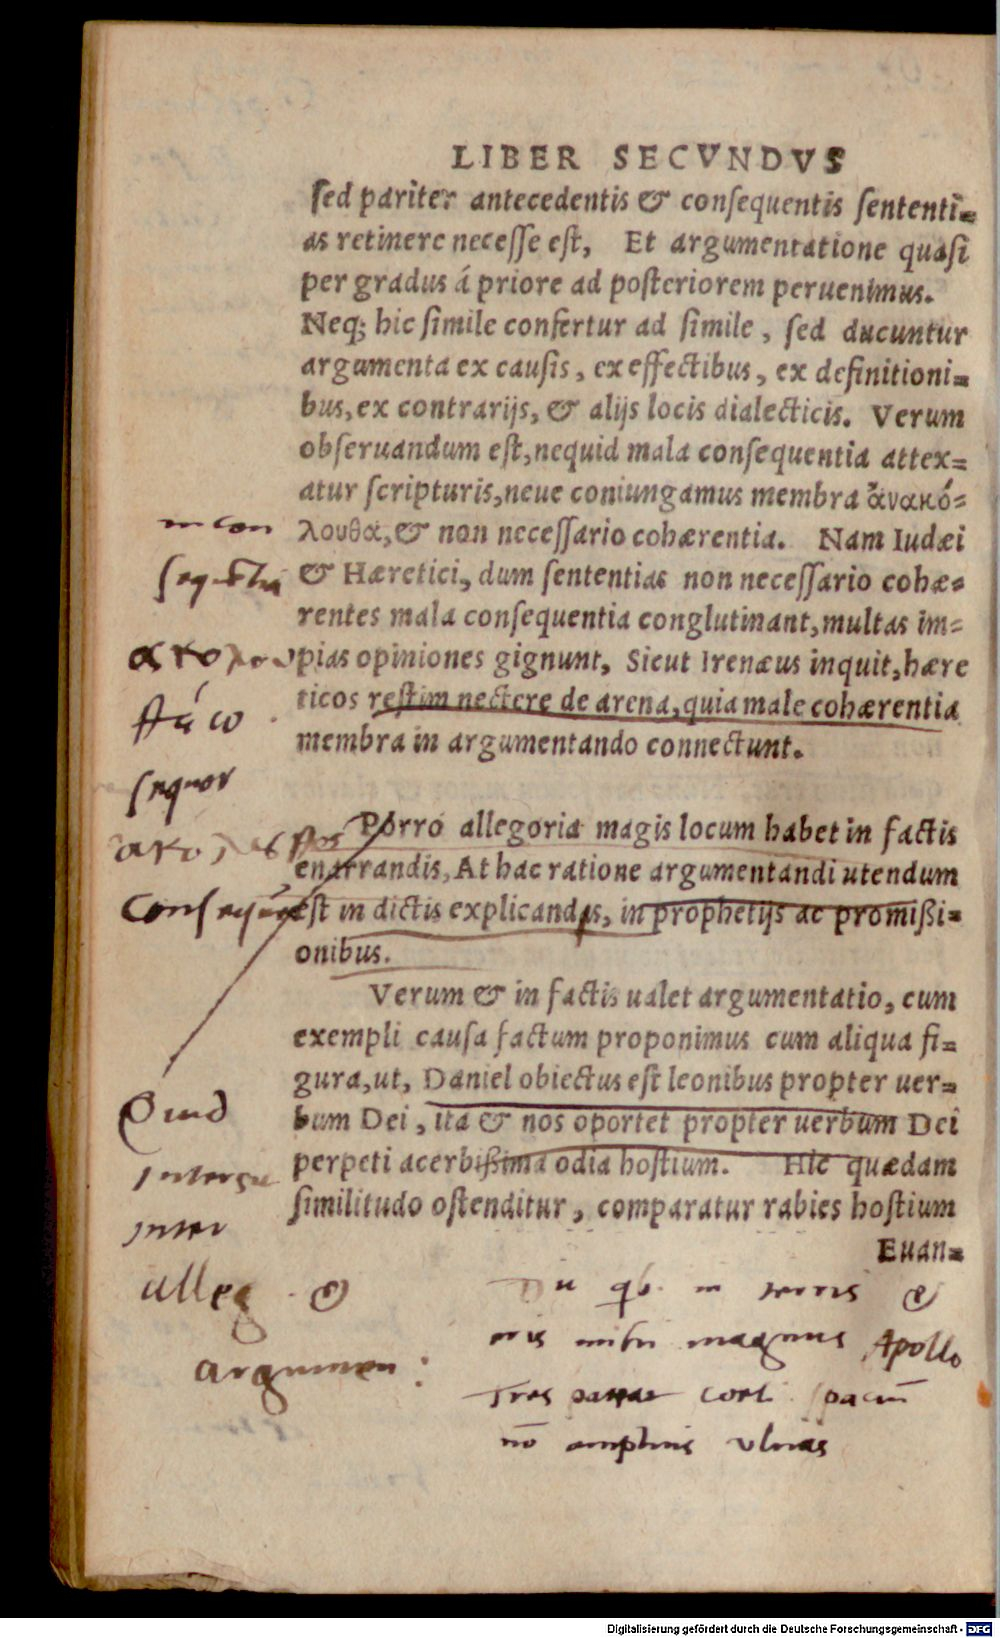 LIBER SECVNDVS
sed pariter antecedentis & consequentis sententi=
as retinere necesse est, Et argumentatione quasi
per gradus á priore ad posteriorem peruenimus.
Neq; hic simile confertur ad simile, sed ducuntur
argumenta ex causis, ex effectibus, ex definitioni=
bus, ex contrarijs, & alijs locis dialecticis. Verum
obseruandum est, nequid mala consequentia attex=
atur scripturis, neue coniungamus membra ἀνακό=
in con
λουθα, & non necessario cohærentia. Nam Iudæi
& Hæretici, dum sententias non necessario cohæ=
rentes mala consequentia conglutinant, multas im=
pias opiniones gignunt, Sicut Irenæus inquit, hære
ticos restim nectere de arena, quia male cohærentia
membra in argumentando connectunt.
sequor
Porro allegoria magis locum habet in factis
enarrandis, At hac ratione argumentandi utendum
est in dictis explicandis, in prophetijs ac promißi=
onibus.
Verum & in factis ualet argumentatio, cum
exempli causa factum proponimus cum aliqua fi=
gura, ut, Daniel obiectus est leonibus propter uer=
bum Dei, ita & nos oportet propter uerbum Dei
Quid
perpeti acerbißima odia hostium. Hic quædam
similitudo ostenditur, comparatur rabies hostium
Euan=
inter
alleg. &
argumen:
in terris &
eris mihi magnus Apollo
Tres coeli spaciū
nō amplius vlnas
Digitalisierung gefördert durch die Deutsche Forschungsgemeinschaft - DFG